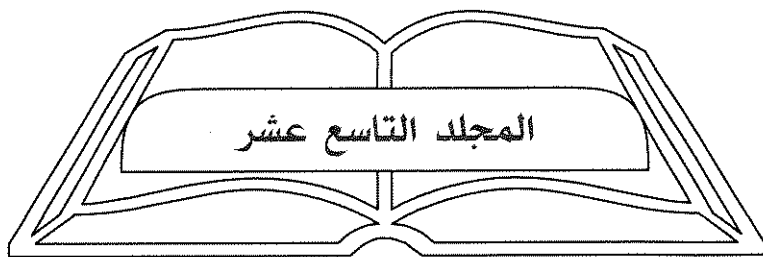 المجلد التاسع عشر